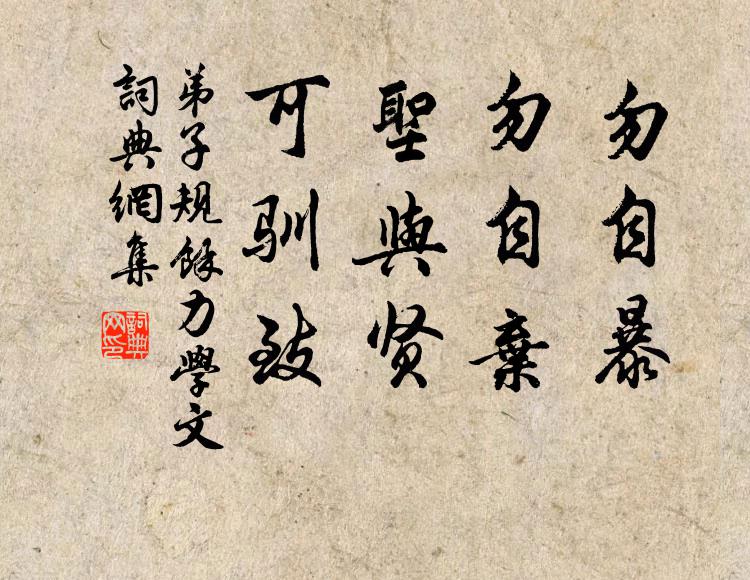 勿自暴
勿自棄
聖與贤
可驯致
弟子規餘力學文
詞典網集
詞典
网印